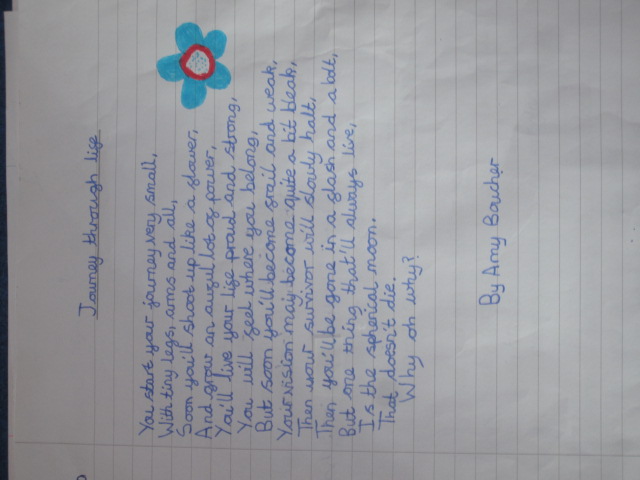 Journey through life
You start your journey very small,
With tiny legs, arms and all,
Soon you'll shoot up like a flower,
And grow an awful lot of power,
You'll live your life proud and strong,
You will feel where you belong,
But soon you'll become frail and weak,
Your vision may become quite a bit bleak,
Then your survivor will slowly halt,
Then you'll be gone in a flash and a bolt,
But one thing that'll always live,
Is the spherical moon.
That doesn't die.
Why oh why?
By Amy Boucher